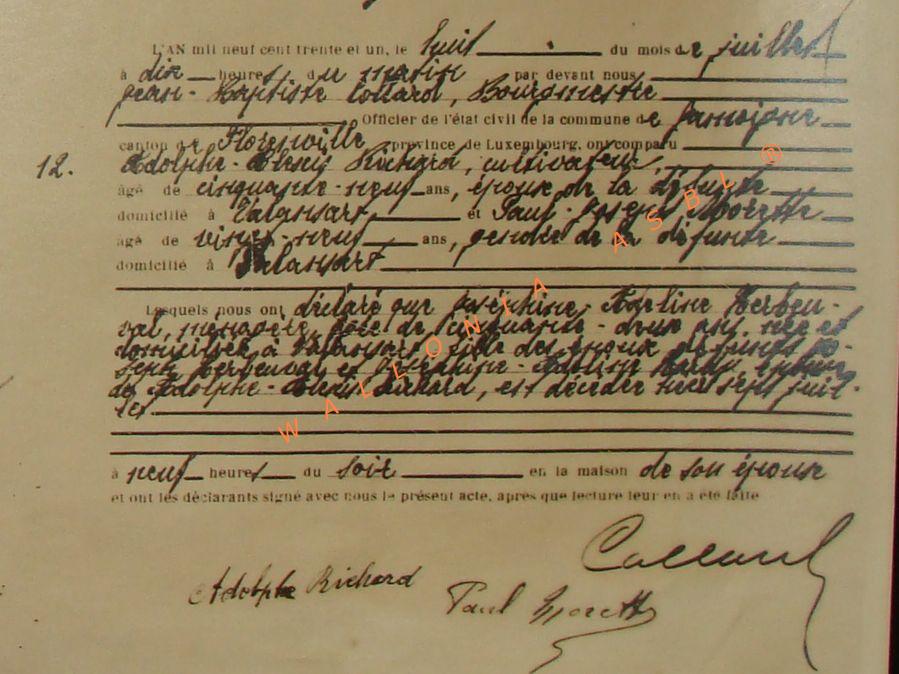 L'AN mil neuf cent trente et un, le huit du mois de juillet
à dix heures du matin par devant nous
Jean-Baptiste Collard, Bourgmestre
Officier de l'état civil de la commune de Jamoigne
canton de Florenville province de Luxembourg, ont comparu
12. Adolphe-Alexis Richard, cultivateur,
âgé de cinquante-neuf ans, époux de la défunte
domicilié à Valansart et Paul-Joseph
âgé de vingt-neuf ans, gendre de la défunte
domicilié à Valansart
Lesquels nous ont déclaré que Joséphine-Adeline Herbeu-
val, ménagère, âgée de cinquante-deux ans, née et
domiciliée à Valansart, fille des époux défunts Jo-
seph Herbeuval et Joséphine- épouse
de Adolphe-Alexis Richard, est décédée hier sept juil-
let
à neuf heures du soir en la maison de son épouse
et ont les déclarants signé avec nous le présent acte, après que lecture leur en a été faite
Collard
Adolphe Richard
Paul
WALLONIA ASBL ®